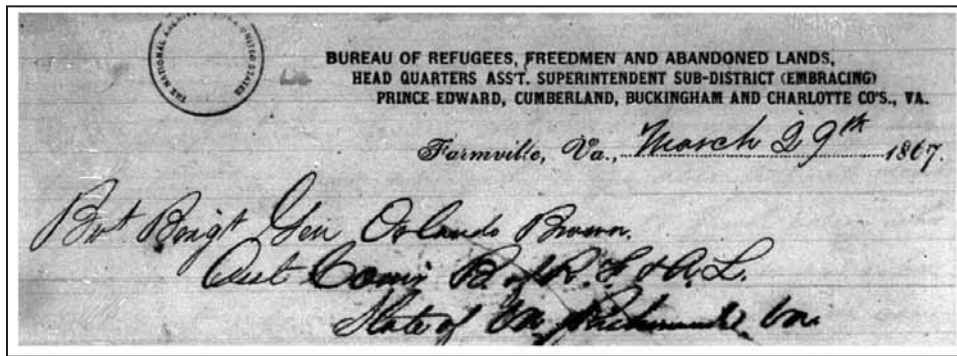 THE NATIONAL ARCHIVES OF THE UNITED STATES
BUREAU OF REFUGEES, FREEDMEN AND ABANDONED LANDS,
HEAD QUARTERS ASS'T. SUPERINTENDENT SUB-DISTRICT (EMBRACING)
PRINCE EDWARD, CUMBERLAND, BUCKINGHAM AND CHARLOTTE CO'S., VA.
Farmville, Va., March 29th 1867.
Bvt Brigt Gen Orlando Brown.
Asst Comr B of R. F & A. L.
State of Va, Richmond, Va.